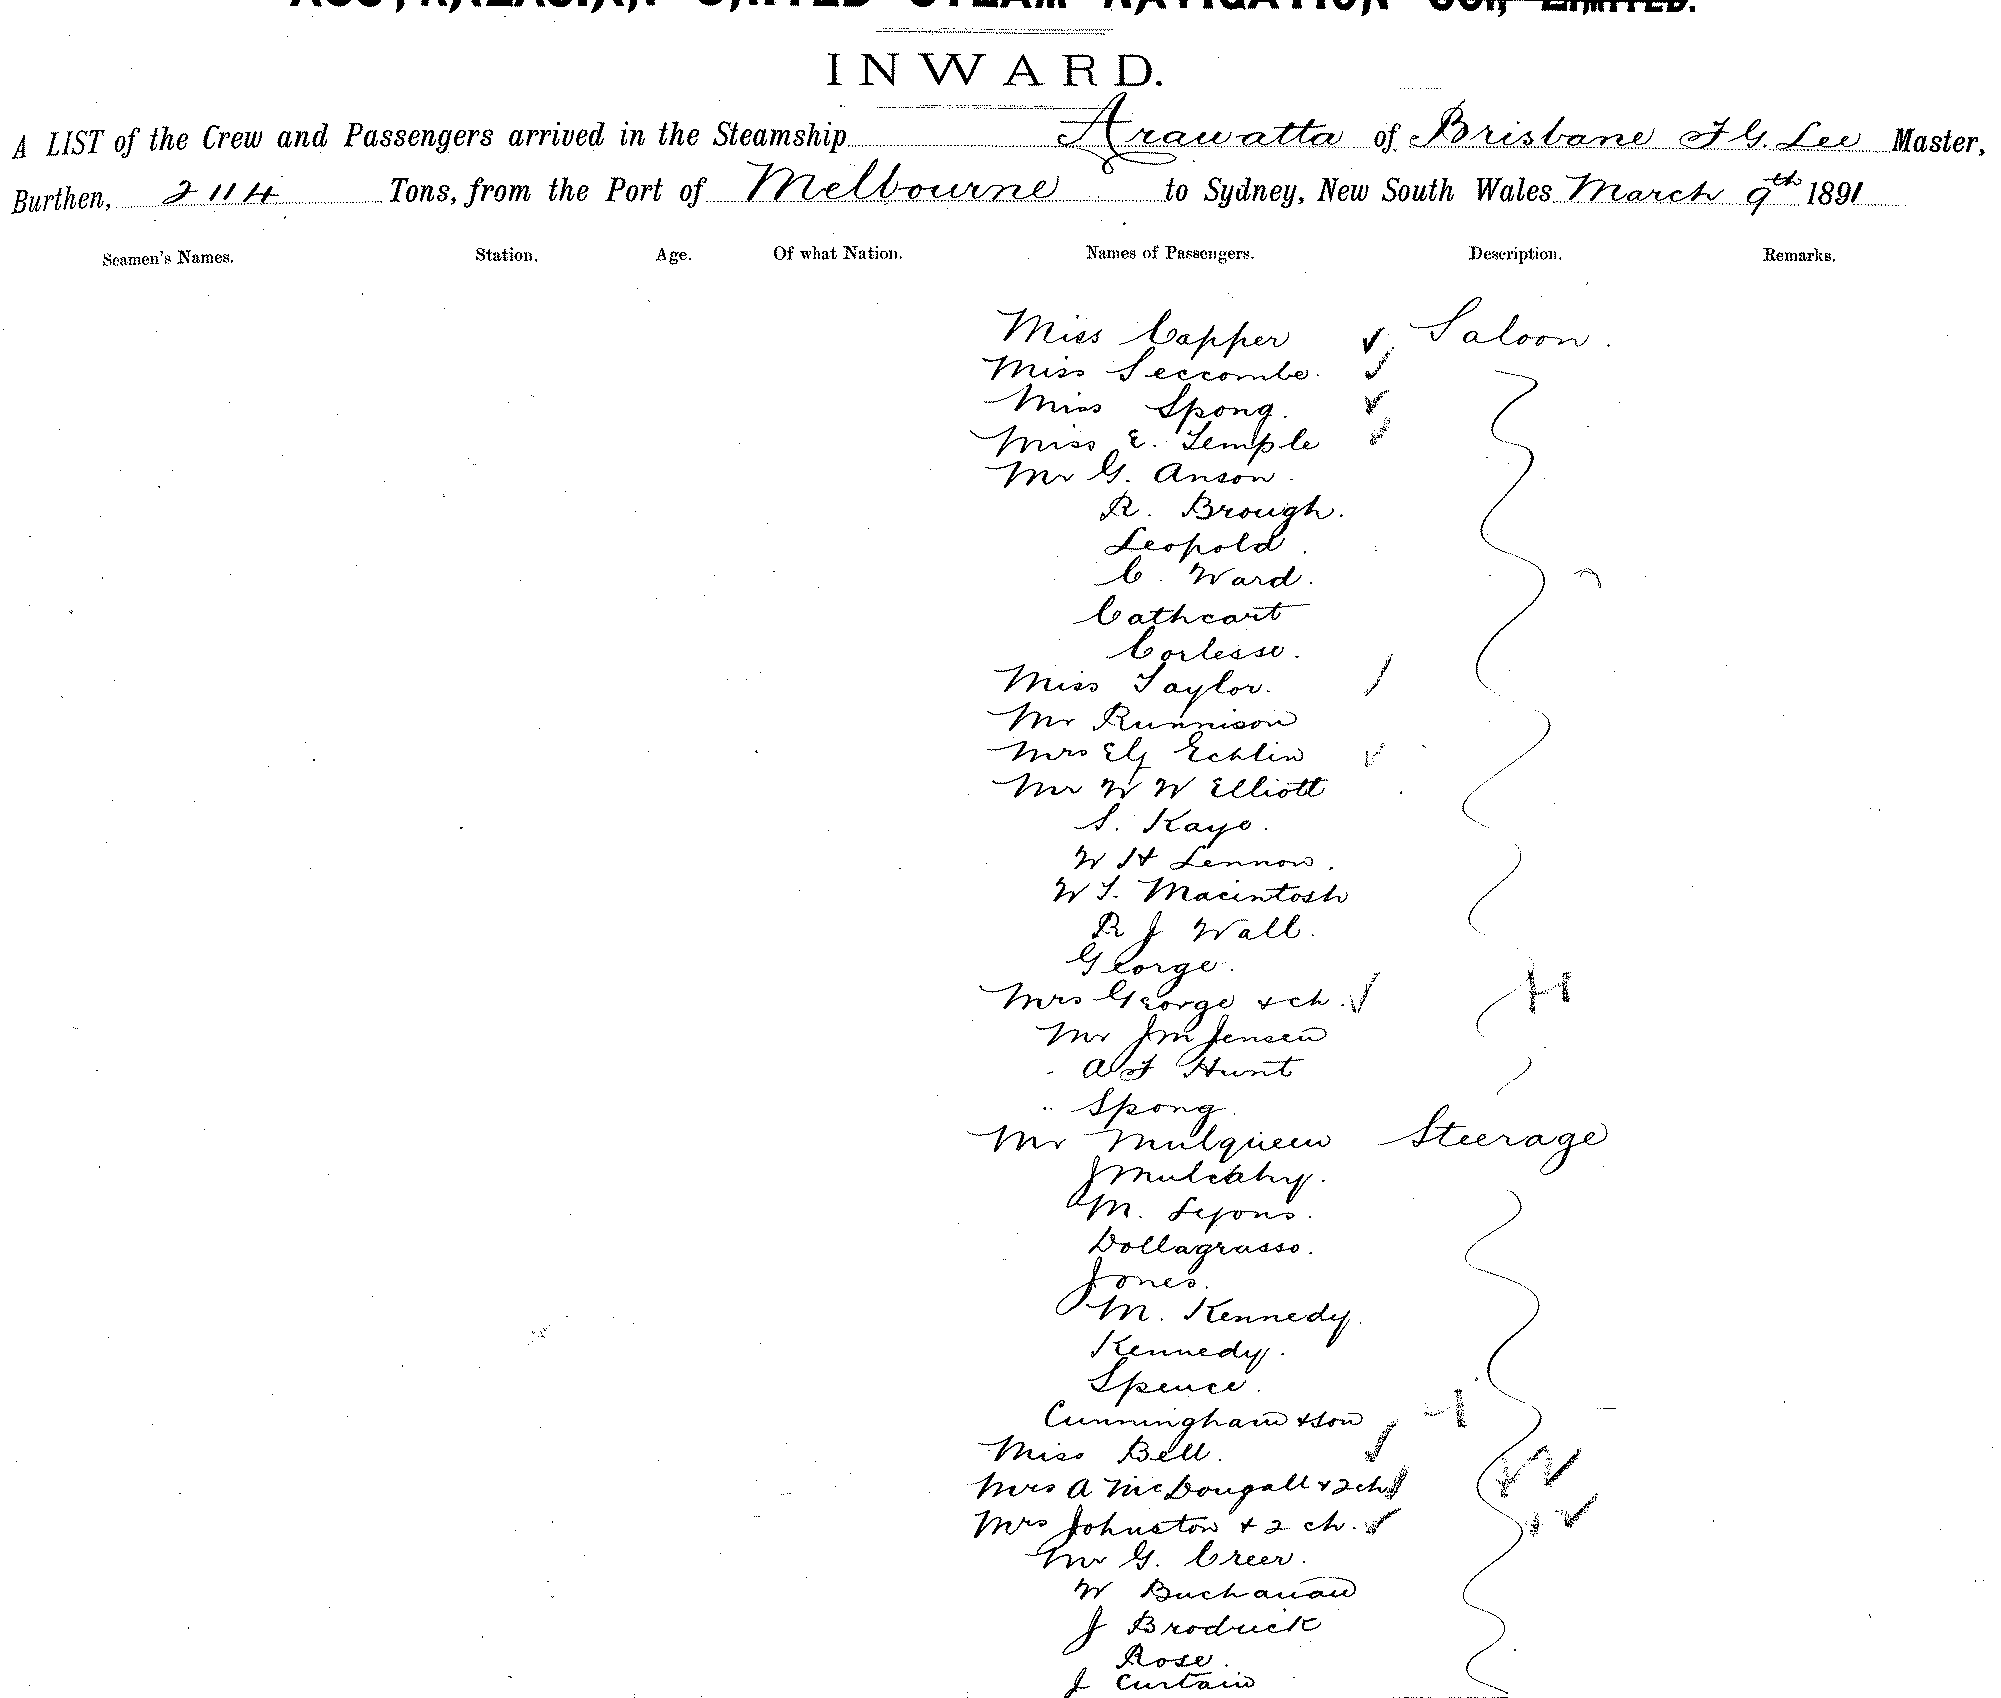 AUSTRALASIAN UNITED STEAM NAVIGATION CO., LIMITED.
INWARD.
A LIST of the Crew and Passengers arrived in the Steamship Arawatta of Brisbane F G. Lee Master,
Burthen, 2114 Tons, from the Port of Melbourne to Sydney, New South Wales March 9th 1891
Seamen's Names. Station. Age. Of what Nation. Names of Passengers. Description. Remarks.
Miss Capper Saloon.
Miss Seccombe.
Miss Spong.
Miss E. Temple
Mr G. Anson.
R. Brough.
Leopold.
C. Ward.
Cathcart
Corlesse.
Miss Taylor.
Mr Runnison
Mrs Echlin
Mr W W Elliott
S. Kayo.
W H Lennon.
W S. Macintosh
R J Wall.
George.
Mrs George & ch.
Mr J M Jensen
" A F Hunt
" Spong.
Mr Mulqueen Steerage
J Mulcahy.
M. Lyons.
Dollagrasso.
Jones.
M. Kennedy.
Kennedy.
Spence.
Cunningham & son
Miss Bell.
Mrs A McDougall & 2 ch
Mrs Johnston & 2 ch.
Mr G. Creer.
W Buchanan
J Brodrick
Rose.
J Curtain